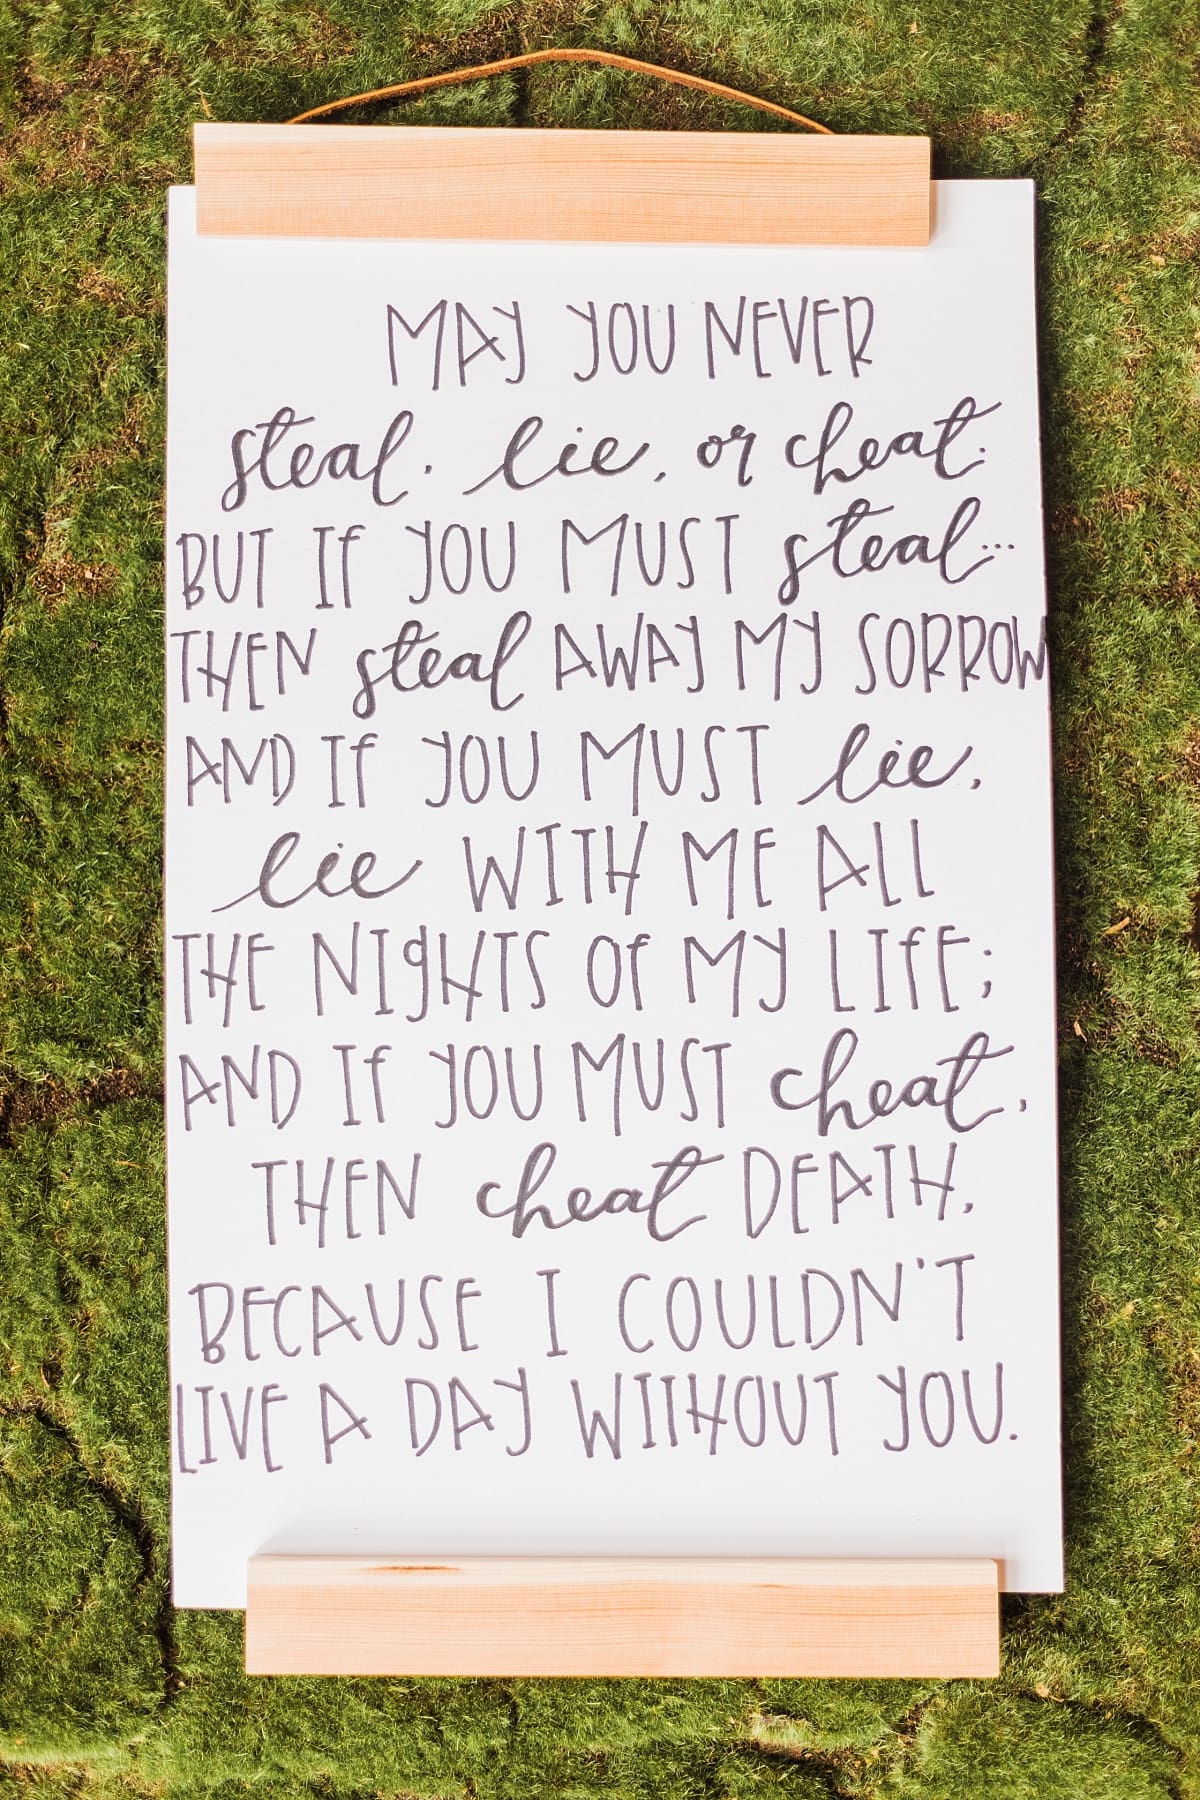 MAY YOU NEVER
steal, lie, or cheat.
BUT IF YOU MUST steal...
THEN steal AWAY MY SORROW
AND IF YOU MUST lie,
lie WITH ME ALL
THE NIGHTS OF MY LIFE;
AND IF YOU MUST cheat,
THEN cheat DEATH,
BECAUSE I COULDN'T
LIVE A DAY WITHOUT YOU.